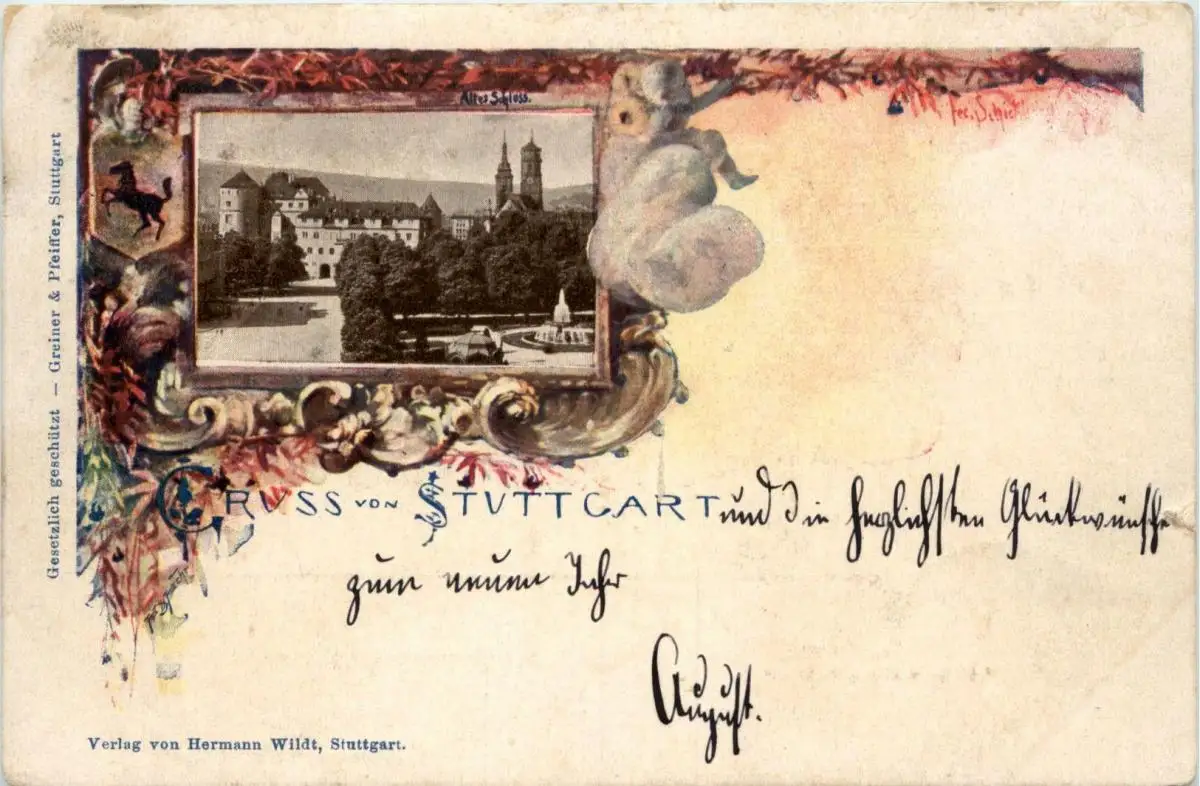 Altes Schloss.
Gesetzlich geschützt — Greiner & Pfeiffer, Stuttgart
GRUSS VON STUTTGART und die herzlichsten Glückwünsche
zum neuen Jahr
August.
Verlag von Hermann Wildt, Stuttgart.